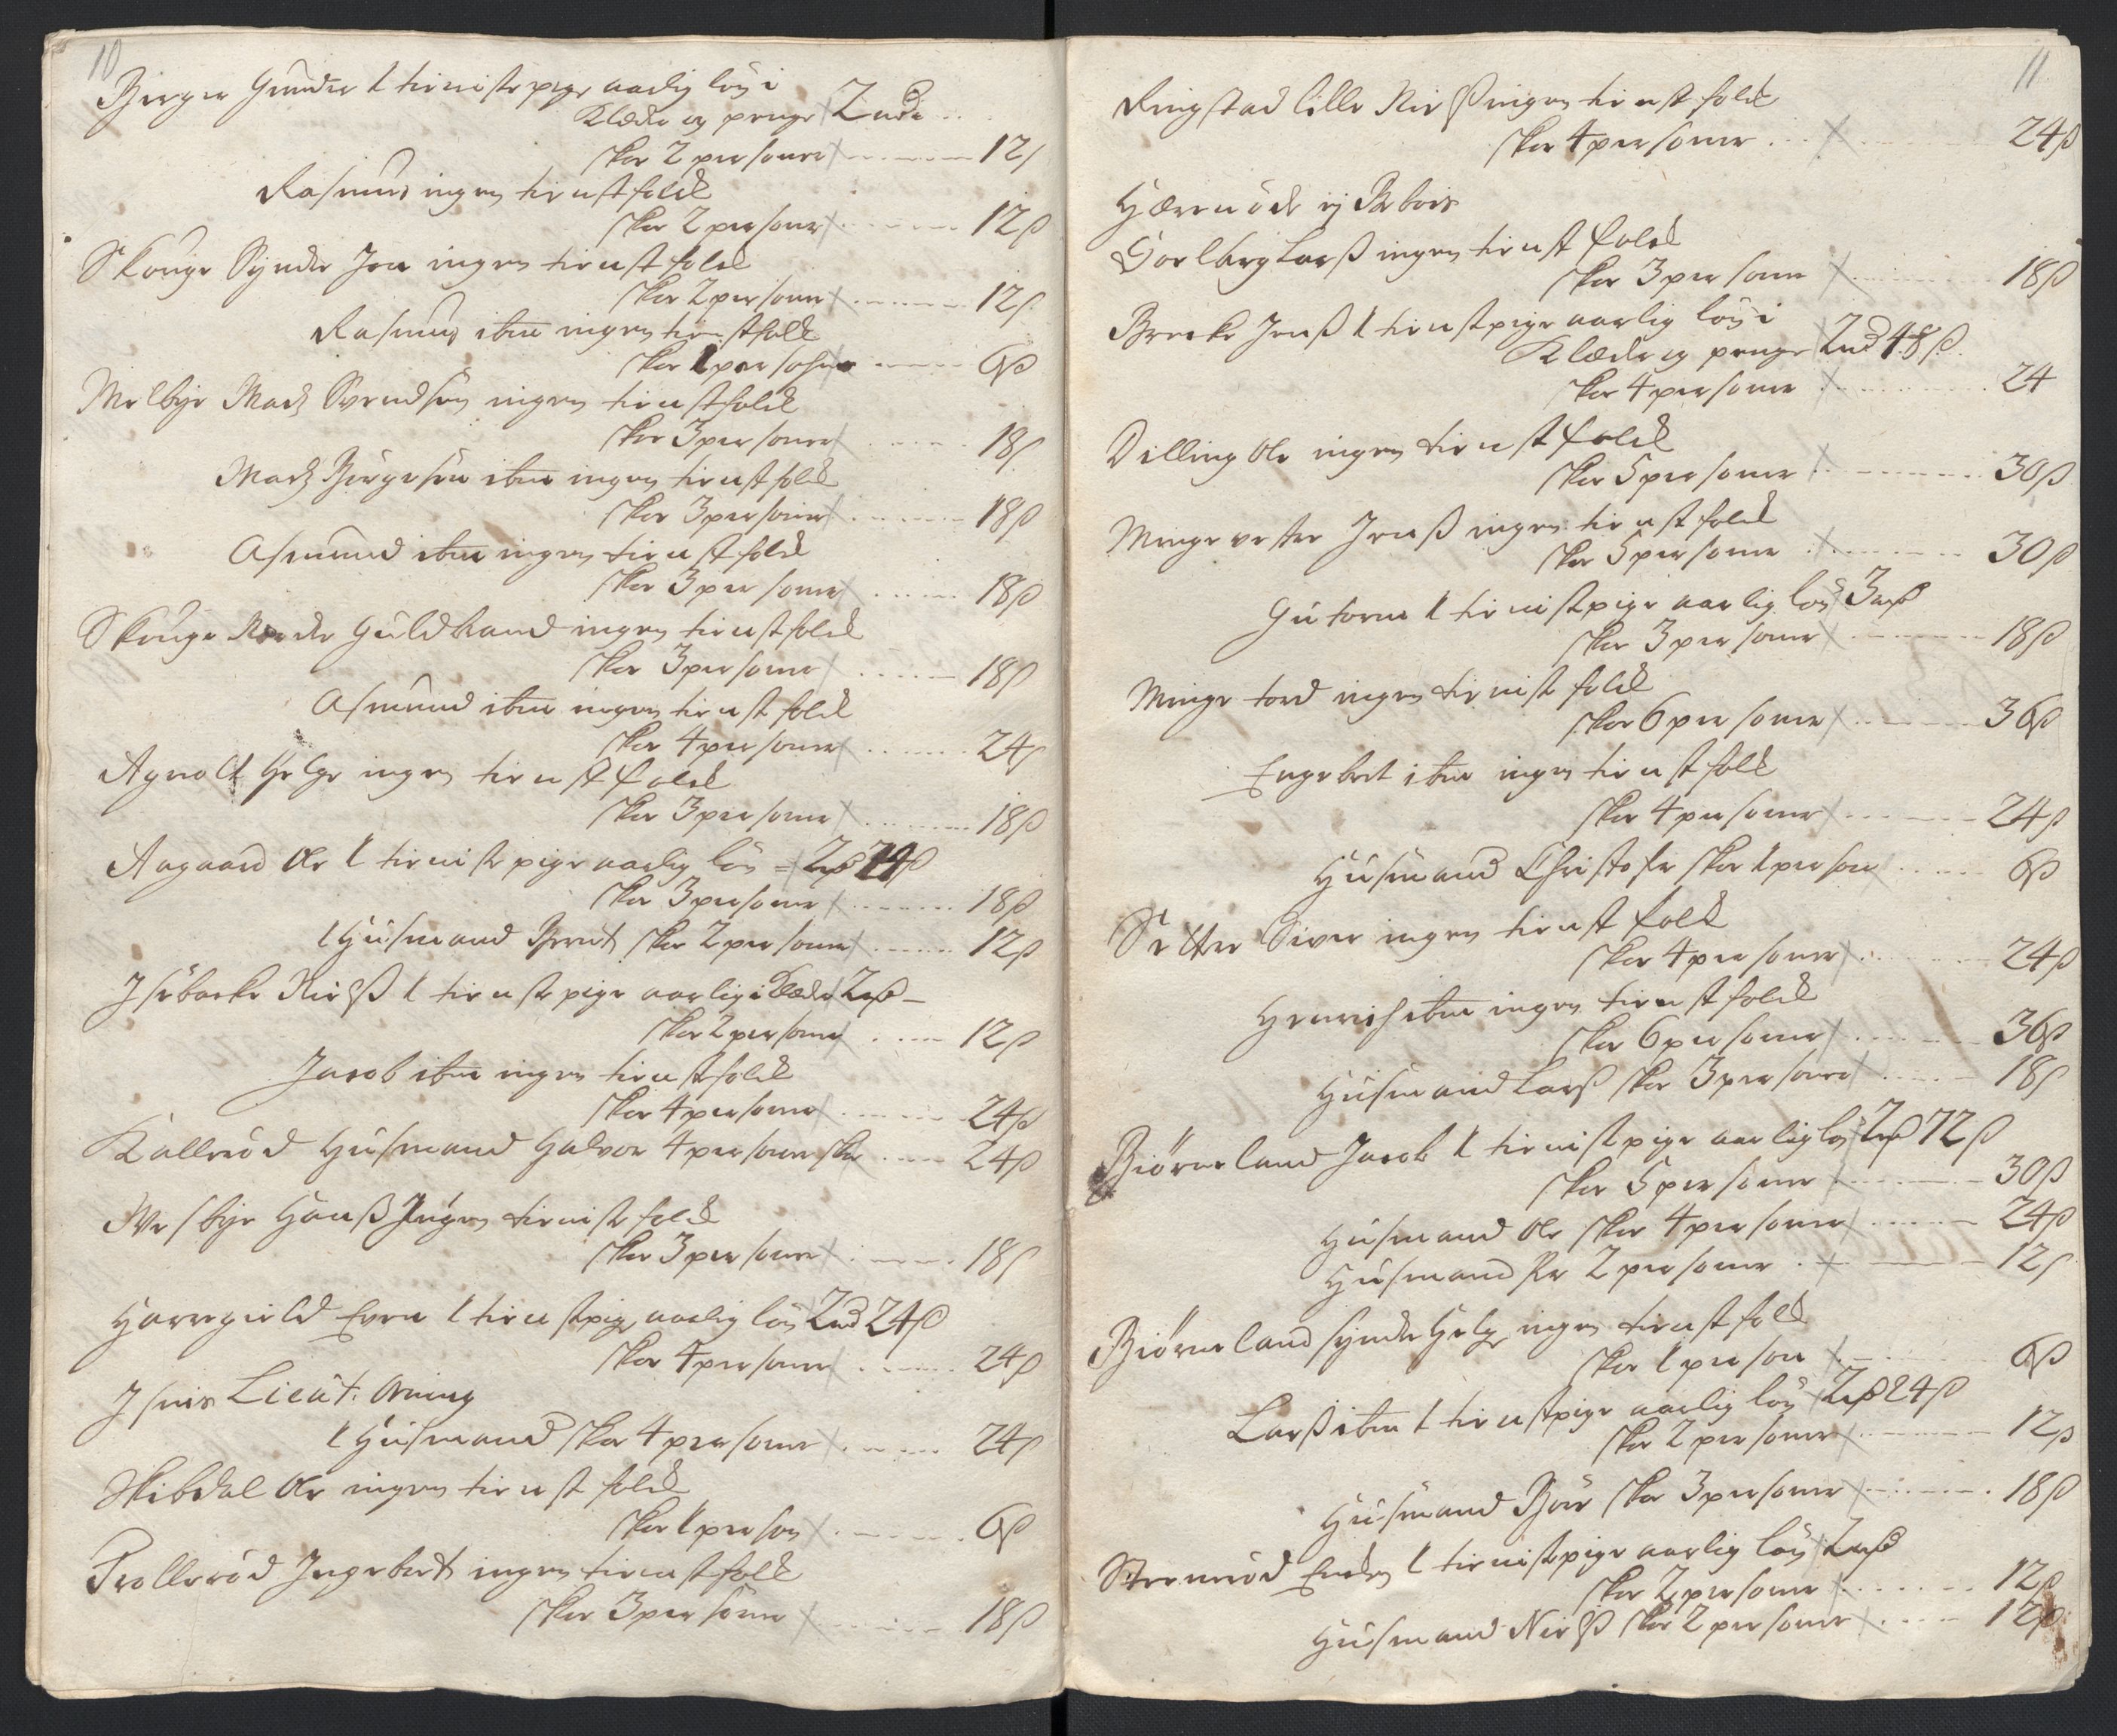 10
Berger Gunder 1 tienistepige aarlig løn i
Klæder og penge 2 rd
skor 2 personer 12 ß
Rasmus ingen tienstfolck
skor 2 persone 12 ß
Skouge Synder Jon ingen tienstfolck
skor 2 persone 12 ß
Rasmus item ingen tienstfolck
skor 1 persohn 6 ß
Melbye Madz Svendsøn ingen tienstfolck
skor 3 personer 18 ß
Madz Børgesøn item ingen tienstfolck
skor 3 persone 18 ß
Asmund item ingen tienstfolck
skor 3 persone 18 ß
Skouge Norder Guldbrand ingen tienstfolck
skor 3 persone 18 ß
Asmund item ingen tienstfolck
skor 4 persone 24 ß
Agnalt Helge ingen tienstfolck
skor 3 persone 18 ß
Aagaard Ole 1 tieniste pige aarlig løn 2 rd 24 ß
skor 3 persone 18 ß
1 Husmand Bernt skor 2 persone 12 ß
Isebacke Nielß 1 tienste pige aarlig i Klæder 2 rd
skor 2 persone 12 ß
Jacob item ingen tienstfolck
skor 4 persone 24 ß
Kallerød Husmand Halvor 4 persone skor 24 ß
Wesbye Hanß Ingen tieniste folck
skor 3 persone 18 ß
Harregield Even 1 tienstpige aarlig løn 2 rd 24 ß
skor 4 persone 24 ß
Isnis Lieut: Orning
1 Husmand skor 4 persone 24 ß
Skibdal Ole ingen tienst folck
skor 1 person 6 ß
Trollerød Ingebret ingen tienstfolck
skor 3 persone 18 ß
11
Ringstad lille Nielß ingen tienst folck
skor 4 persone 24 ß
Hærenøde ej
Solberg Larß ingen tienst folck
skor 3 persone 18 ß
Brecke Jenß 1 tienstpige aarlig løn i
Klæder og penge 2 rd 48 ß
skor 4 persone 24
Dilling Ole ingen tienst folck
skor 5 persone 30 ß
Minge vester Jenß ingen tienst folck
skor 5 persone 30 ß
Gutorm 1 tienistpige aarlig løn 3 rd
skor 3 persone 18 ß
Minge tord ingen tienist folck
skor 6 persone 36 ß
Engebret item ingen tienst folck
skor 4 persone 24 ß
Husmand Christofer skor 1 person 6 ß
Setter Siver ingen tienst folck
skor 4 persone 24 ß
Henrich item ingen tienst folck
skor 6 persone 36 ß
Husmand Larß skor 3 persone 18 ß
Biørneland Jacob 1 tienistpige aarlig løn 2 rd 72 ß
skor 5 persone 30 ß
Husmand Ole skor 4 persone 24 ß
Husmand Per 2 persone 12 ß
Biørneland synder Helge ingen tienst folck
skor 1 person 6 ß
Larß item 1 tienstpige aarlig løn 2 rd 24 ß
skor 2 persone 12 ß
Husmand Biør skor 3 persone 18 ß
Sternrød Enden 1 tienistepige aarlig løn 2 rd
skor 2 persone 12 ß
Husmand Nielß skor 2 persone 12 ß